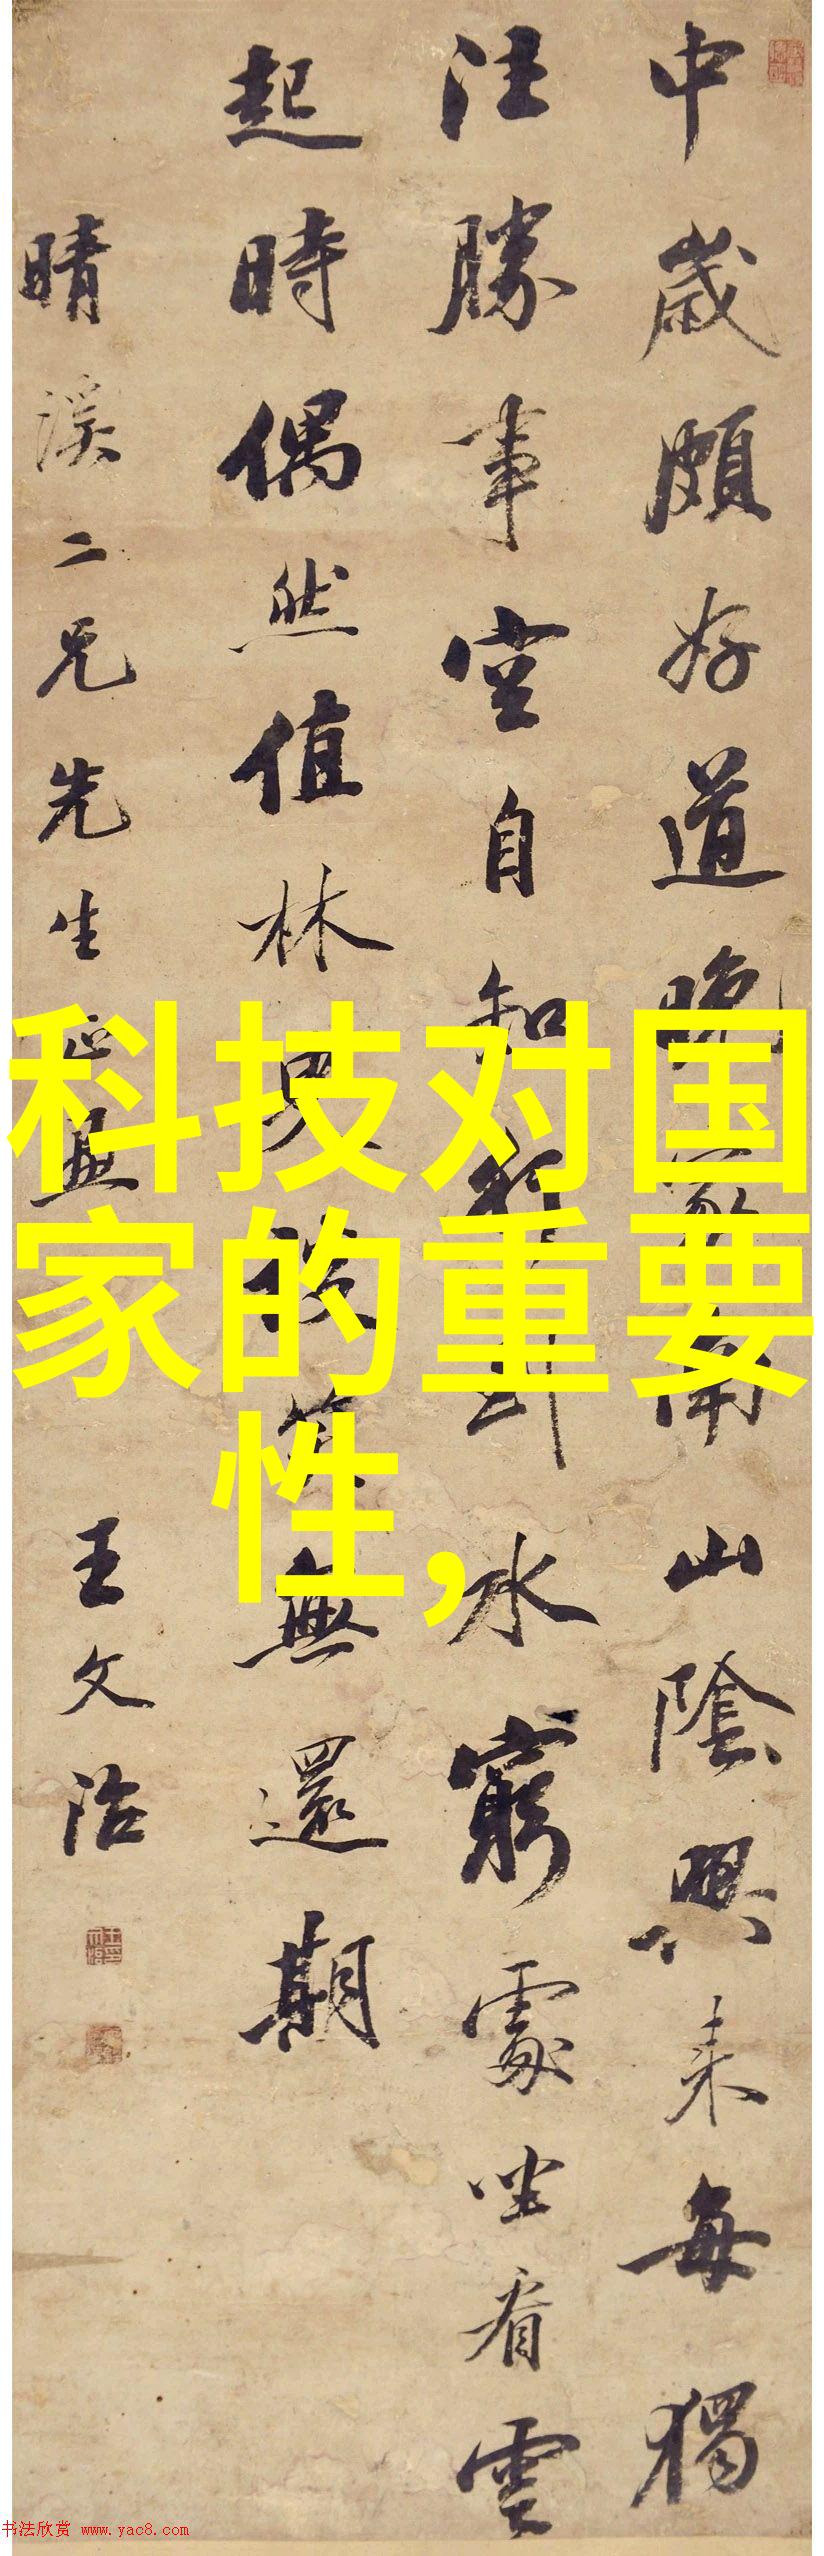 中歲頗好道晚家南山陰興來每獨
往勝事空自知行到水窮處坐看雲
起時偶然值林叟談笑無還期
晴溪二兄先生正
王文治
科技对国
家的重要
性,
书法欣赏 www.yac8.com